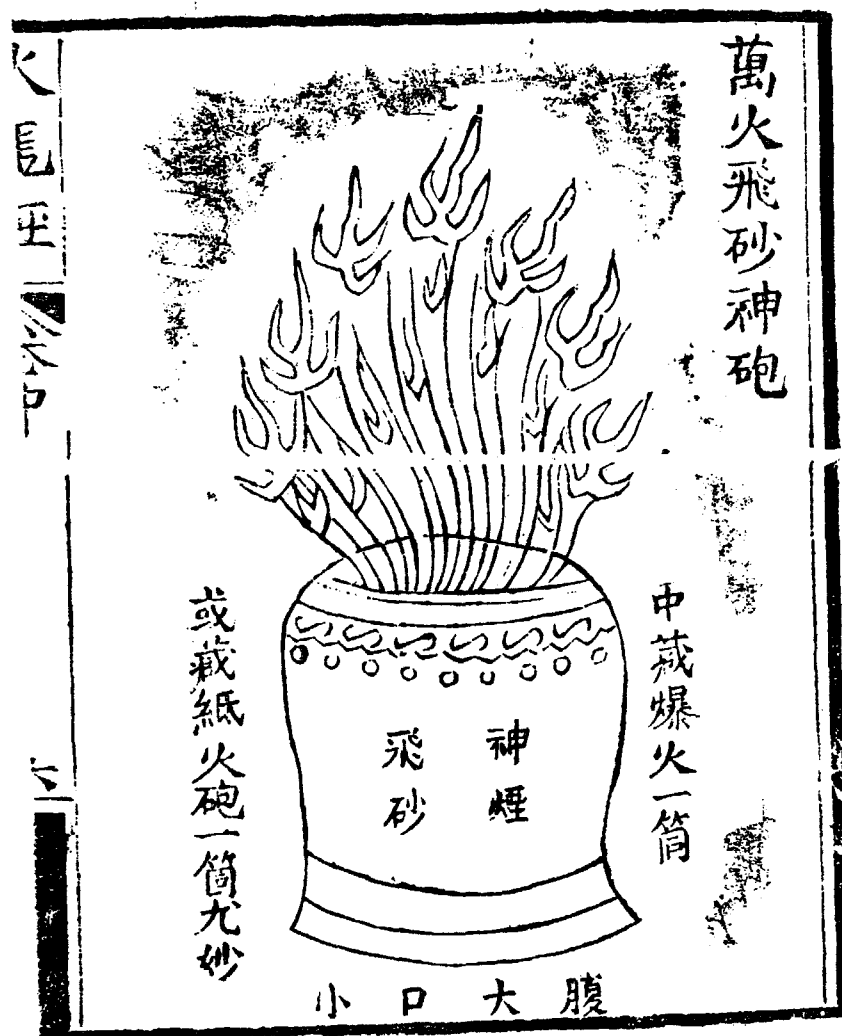 萬火飛砂神砲
中藏爆火一筒
神煙
飛砂
或藏紙火砲一箇尤妙
腹大口小
火